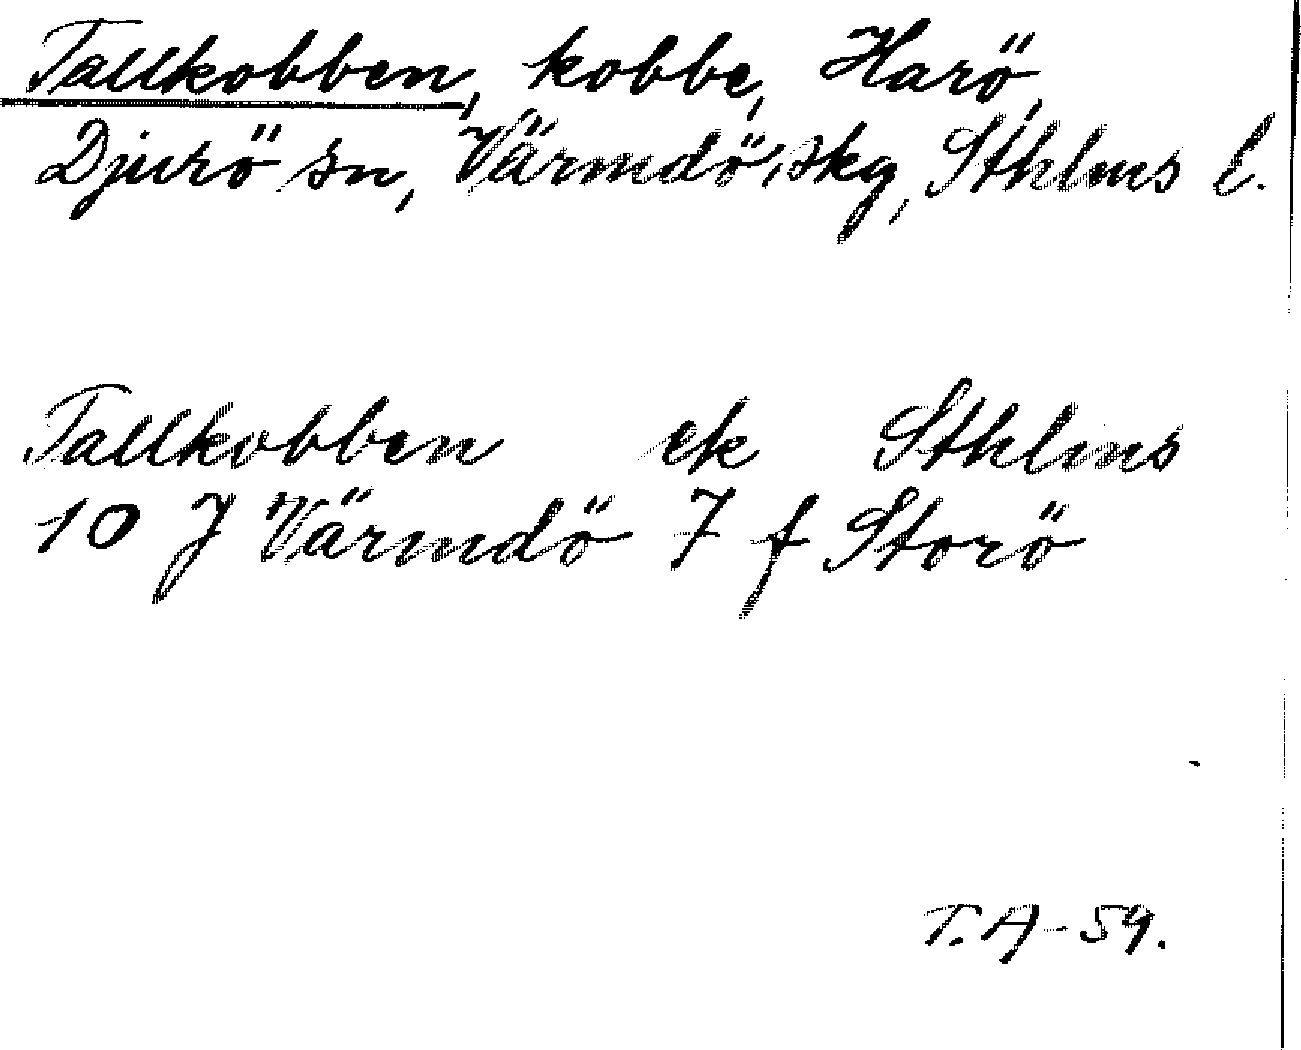 Tallkobben, kobbe, Harö,
Djurö sn, Värmdö skg, Sthlms l.
Tallkobben ek Sthlms
10 J Värmdö 7 f Storö
T.A-59.